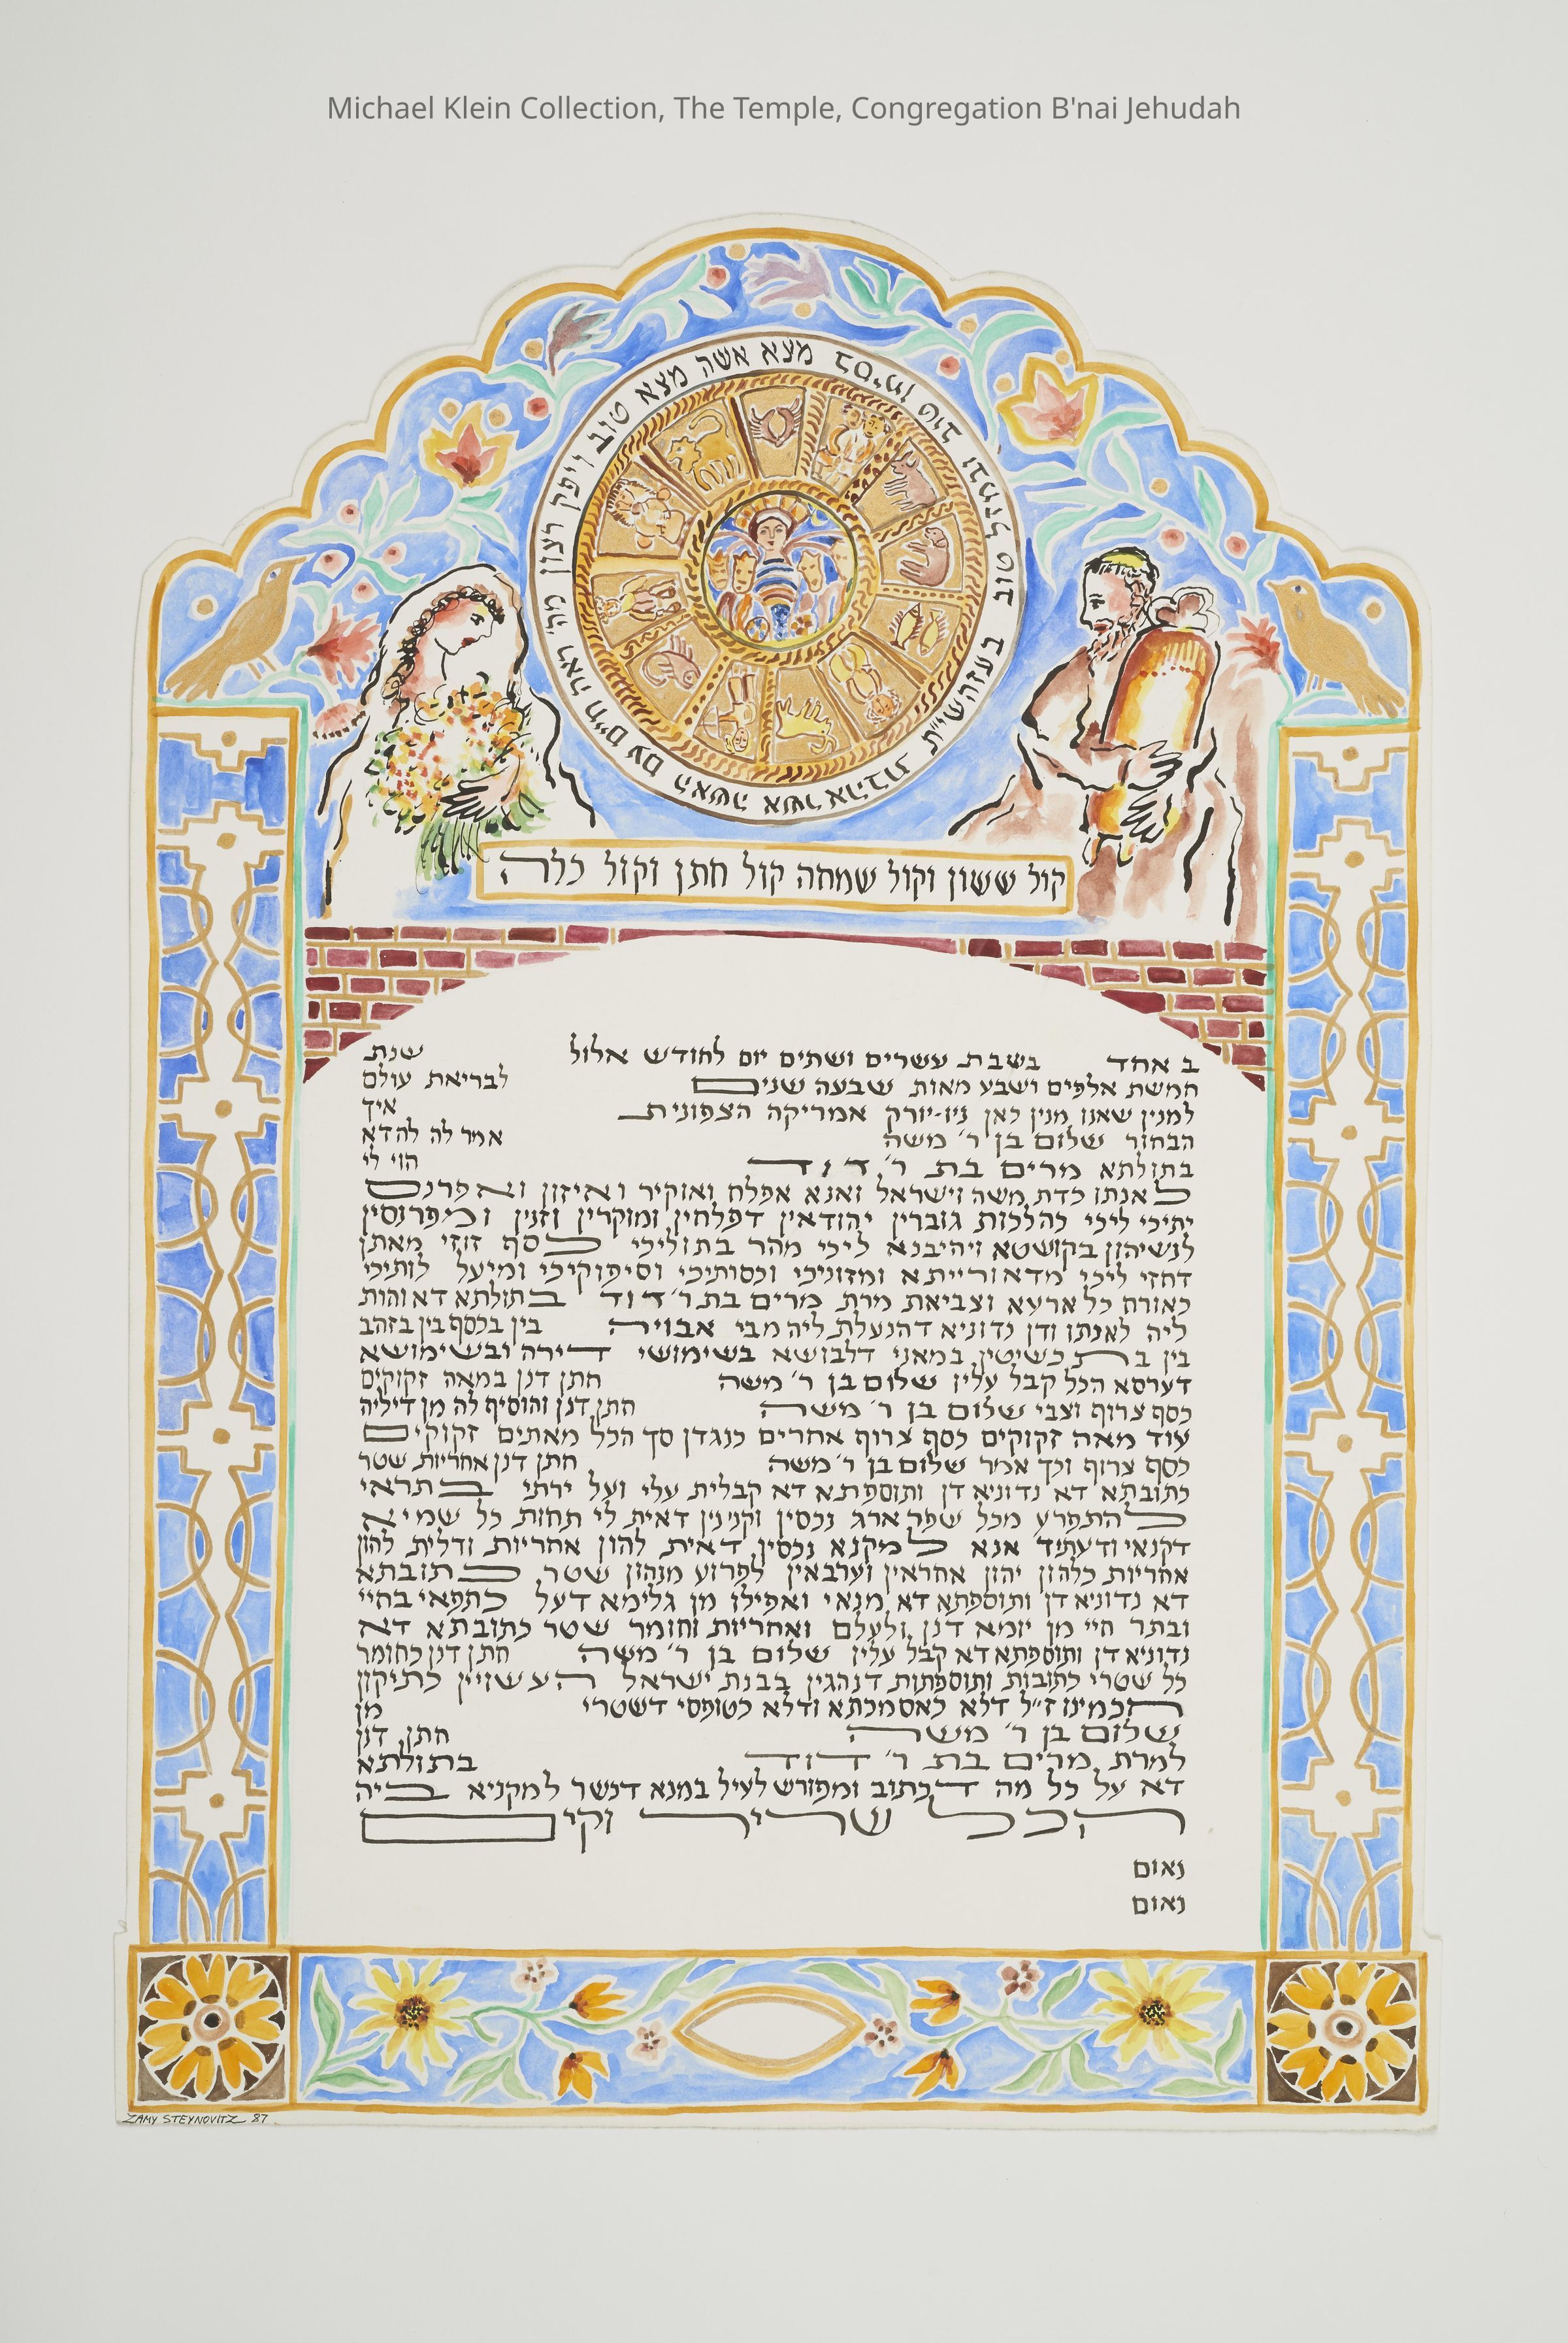 Michael Klein Collection, The Temple, Congregation B'nai Jehudah
מצא אשה מצא טוב ויפק רצון מה' ראה חיים עם האשה אשר אהבת
בסימן טוב ובמזל טוב בעזהשי"ת
קול ששון וקול שמחה קול חתן וקול כלה
ב אחד בשבת עשרים ושתים יום לחודש אלול שנת
חמשת אלפים ושבע מאות שבעה שנים לבריאת עולם
למנין שאנו מנין כאן ניו-יורק אמריקה הצפונית איך
הבחור שלום בן ר' משה אמר לה להדא
בתולתא מרים בת ר' דוד הוי לי
לאנתו כדת משה וישראל ואנא אפלח ואוקיר ואיזון ואפרנס
יתיכי ליכי כהלכות גוברין יהודאין דפלחין ומוקרין וזנין ומפרנסין
לנשיהון בקושטא ויהיבנא ליכי מהר בתוליכי כסף זוזי מאתן
דחזי ליכי מדאורייתא ומזוניכי וכסותיכי וסיפוקיכי ומיעל לותיכי
כאורח כל ארעא וצביאת מרת מרים בת ר' דוד בתולתא דא והות
ליה לאנתו ודן נדוניא דהנעלת ליה מבי אבויה בין בכסף בין בזהב
בין בתכשיטין במאני דלבושא בשימושי דירה ובשימושא
דערסא הכל קבל עליו שלום בן ר' משה חתן דנן במאה זקוקים
כסף צרוף וצבי שלום בן ר' משה חתן דנן והוסיף לה מן דיליה
עוד מאה זקוקים כסף צרוף אחרים כנגדן סך הכל מאתים זקוקים
כסף צרוף וכך אמר שלום בן ר' משה חתן דנן אחריות שטר
כתובתא דא נדוניא דן ותוספתא דא קבלית עלי ועל ירתי בתראי
להתפרע מכל שפר ארג נכסין וקנינין דאית לי תחות כל שמיא
דקנאי ודעתיד אנא למקנא נכסין דאית להון אחריות ודלית להון
אחריות כלהון יהון אחראין וערבאין לפרוע מנהון שטר כתובתא
דא נדוניא דן ותוספתא דא מנאי ואפילו מן גלימא דעל כתפאי בחיי
ובתר חיי מן יומא דנן ולעלם ואחריות וחומר שטר כתובתא דא
נדוניא דן ותוספתא דא קבל עליו שלום בן ר' משה חתן דנן כחומר
כל שטרי כתובות ותוספתות דנהגין בבנת ישראל העשויין כתיקון
חכמינו ז"ל דלא כאסמכתא ודלא כטופסי דשטרי מן
שלום בן ר' משה חתן דנן
למרת מרים בת ר' דוד בתולתא
דא על כל מה דכתוב ומפורש לעיל במנא דכשר למקניא ביה
הכל שריר וקים
נאום
נאום
ZAMY STEYNOVITZ 87